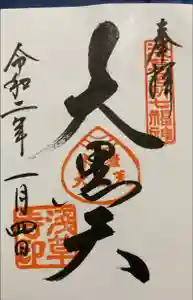 奉拝
浅草七福神
大黒天
令和二年一月四日
浅草
寺印